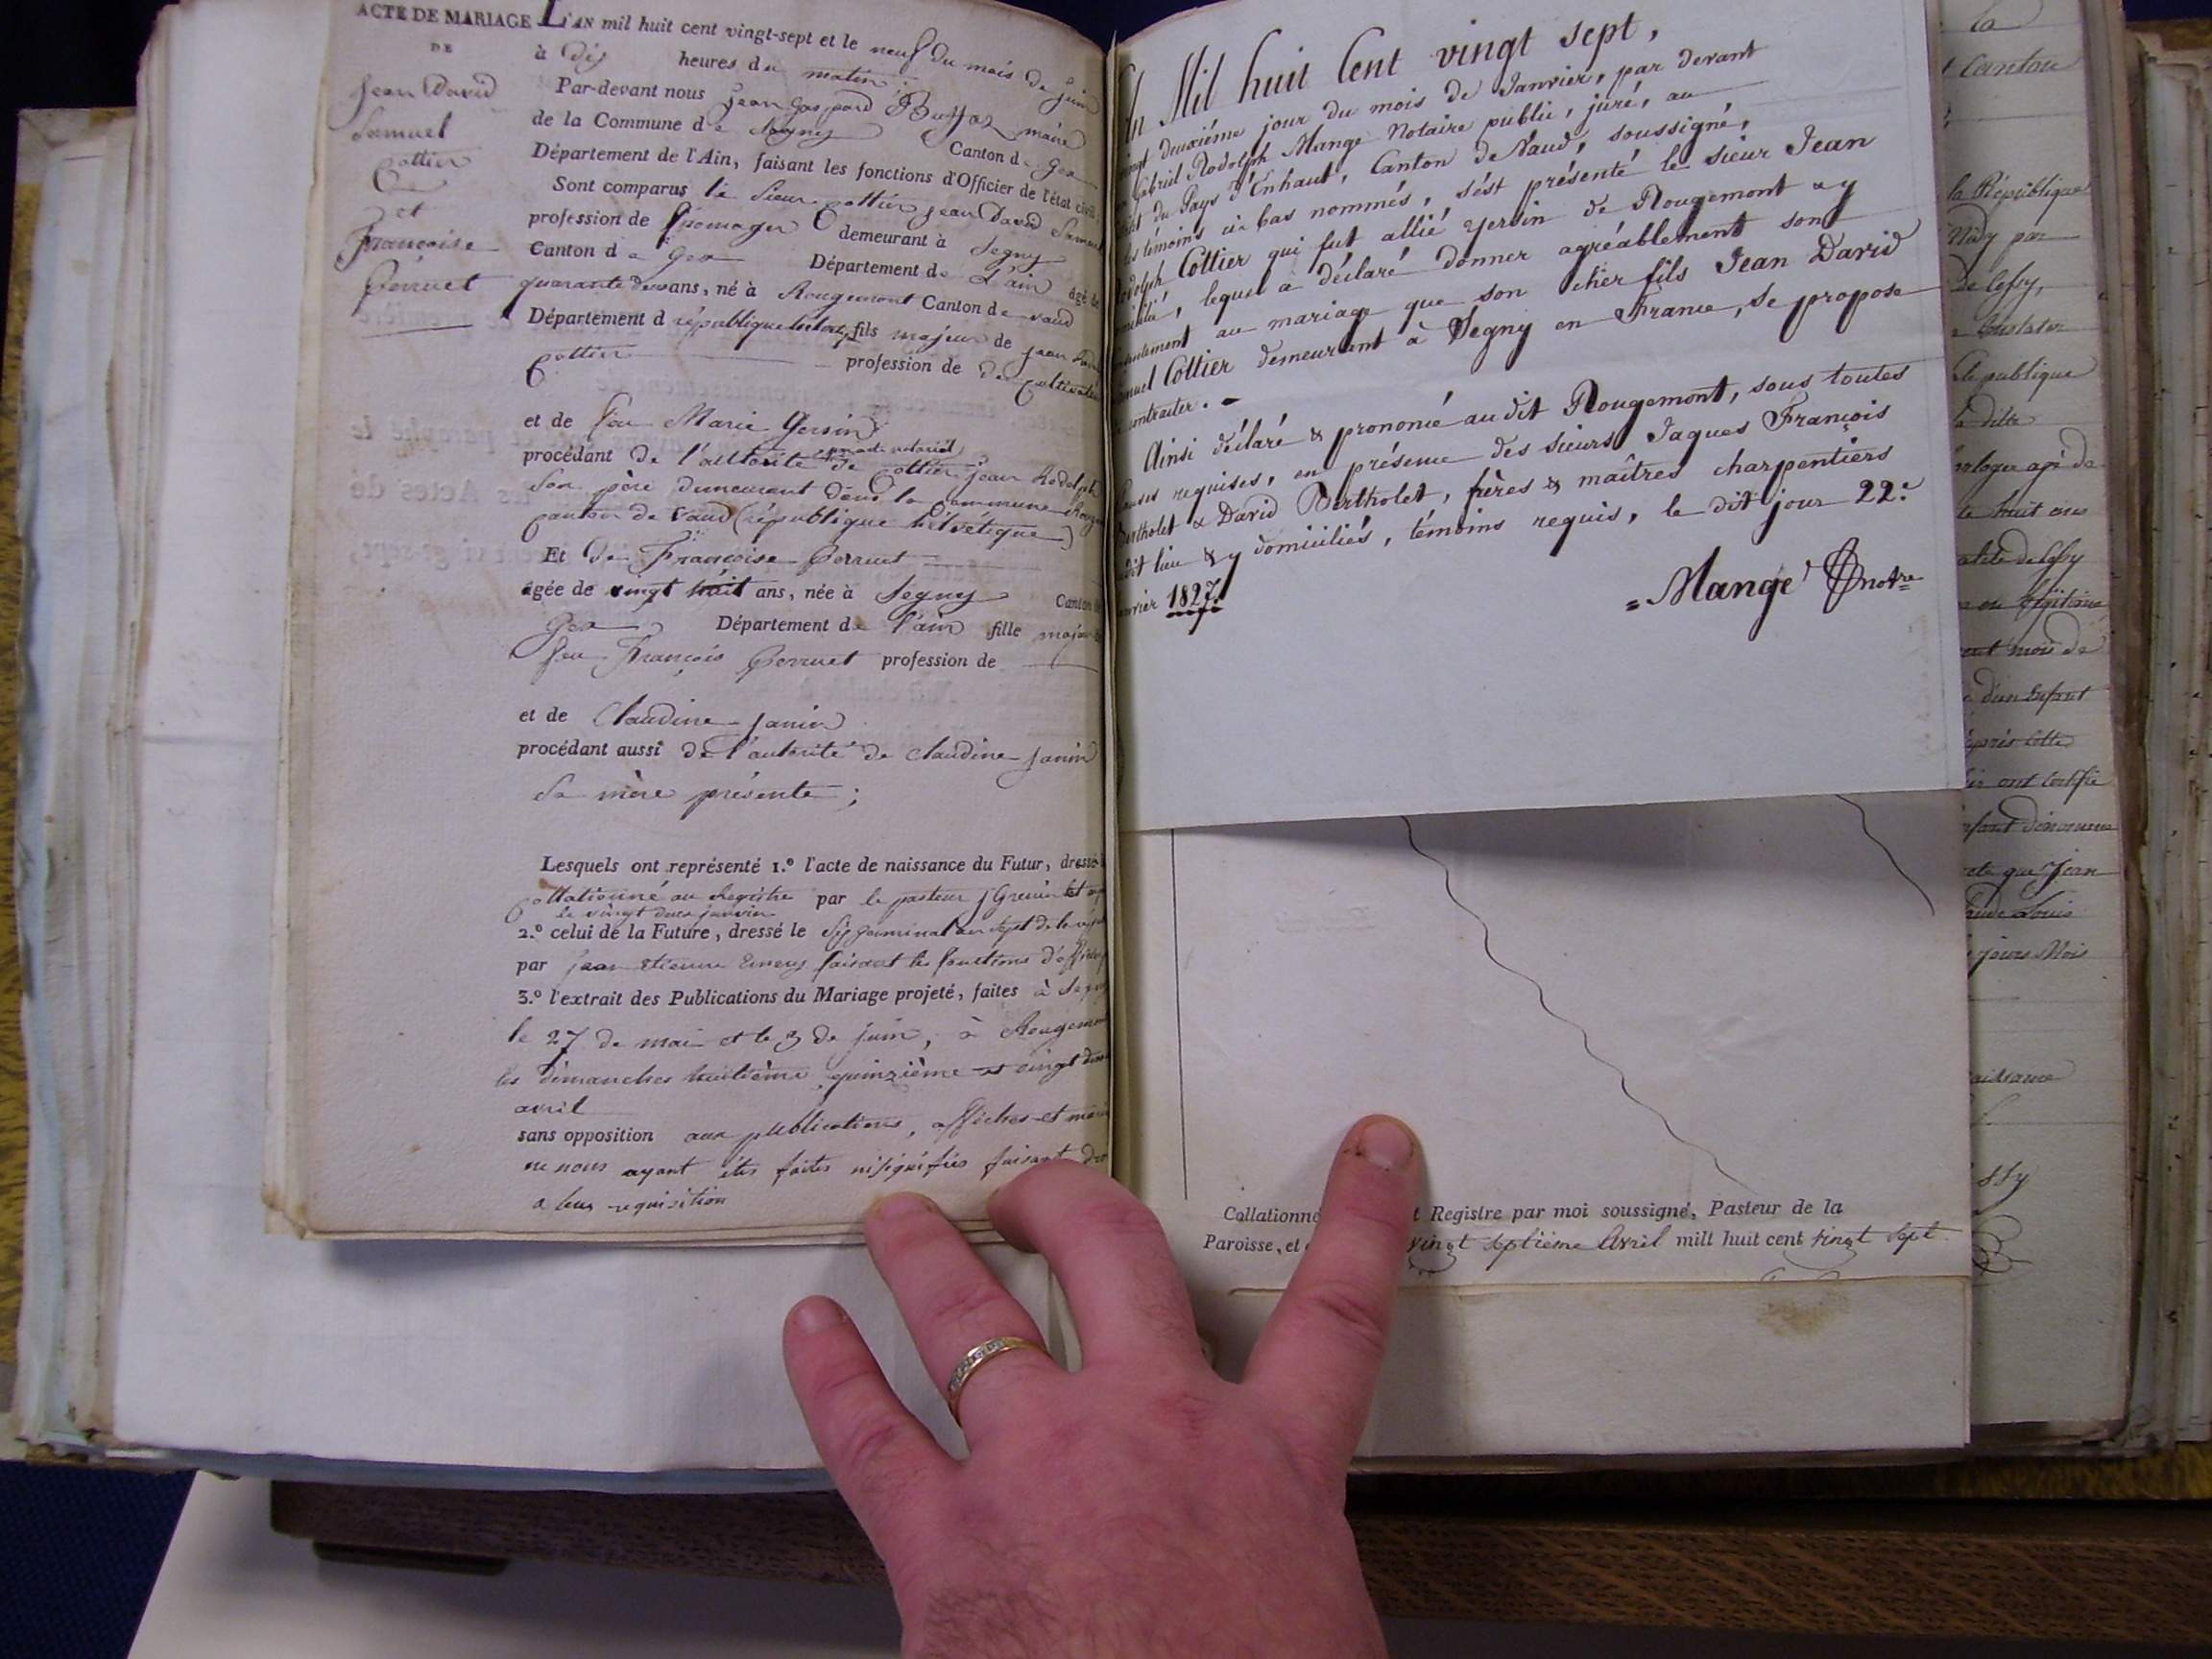 ACTE DE MARIAGE
DE
Jean David
Samuel
Cottier
et
Françoise
Perruet
L'AN mil huit cent vingt-sept et le neuf du mois de juin
à dix heures du matin
Par-devant nous Jean Gaspard Buffaz maire
de la Commune de Segny Canton de Gex
Département de l'Ain, faisant les fonctions d'Officier de l'état civil
Sont comparus le Sieur Cottier Jean David Samuel
profession de fromager demeurant à Segny
Canton de Gex Département de L'ain âgé de
quarante deux ans, né à Rougemont Canton de vaud
Département d république helvet, fils majeur de jean
Cottier profession de cultivateur
et de feu Marie Yersin
par acte notarié
procédant de l'autorité de Cottier jean Rodolph
son père demeurant dans la commune
canton de Vaud (république hélvétique)
Et De Françoise Perruet
âgée de vingt huit ans, née à Segny Canton
Gex Département de l'ain fille majeure
feu François Perruet profession de
et de Claudine Janin
procédant aussi de l'autorité de Claudine Janin
sa mère présente ;
Lesquels ont représenté 1.º l'acte de naissance du Futur, dressé
Collationné au Registre par le pasteur
le vingt deux janvier
2.º celui de la Future, dressé le six germinal an sept de la
par jean Etienne Emery faisant les fonctions d'officier
3.º l'extrait des Publications du Mariage projeté, faites à Segny
le 27 de mai et le 3 de juin, à Rougemont
les dimanches huitième, quinzième et vingt deux
avril
sans opposition aux publications, affiches et
ne nous ayant étés faites ni signifiés faisant
a leur requisition
Mil huit Cent vingt sept,
vingt deuxiéme jour du mois de Janvier, par devant
Gabriel Rodolph Mange Notaire public, juré, au
du Pays d'Enhaut, Canton de Vaud, soussigné,
les témoins ci bas nommés, s'ést présenté le sieur Jean
Rodolph Cottier qui fut allié Yersin de Rougemont & y
lequel a déclaré donner agréablement son
au mariage que son cher fils Jean David
Samuel Cottier demeurant à Segny en France, se propose
contracter.
Ainsi déclaré & prononcé audit Rougemont, sous toutes
clauses requises, en présence des sieurs Jaques François
Bertholet & David Bertholet, frères & maîtres charpentiers
dudit lieu & y domiciliés, témoins requis, le dit jour 22.e
Janvier 1827.
= Mange notre
Collationné Registre par moi soussigné, Pasteur de la
Paroisse, et vingt septième Avril mill huit cent vingt sept
la
Canton
la République
par
de Cessy,
publique
la dite
huit ans
de Cessy
mois de
d'un Enfant
après cette
ont certifié
que Jean
Louis
jours Mois